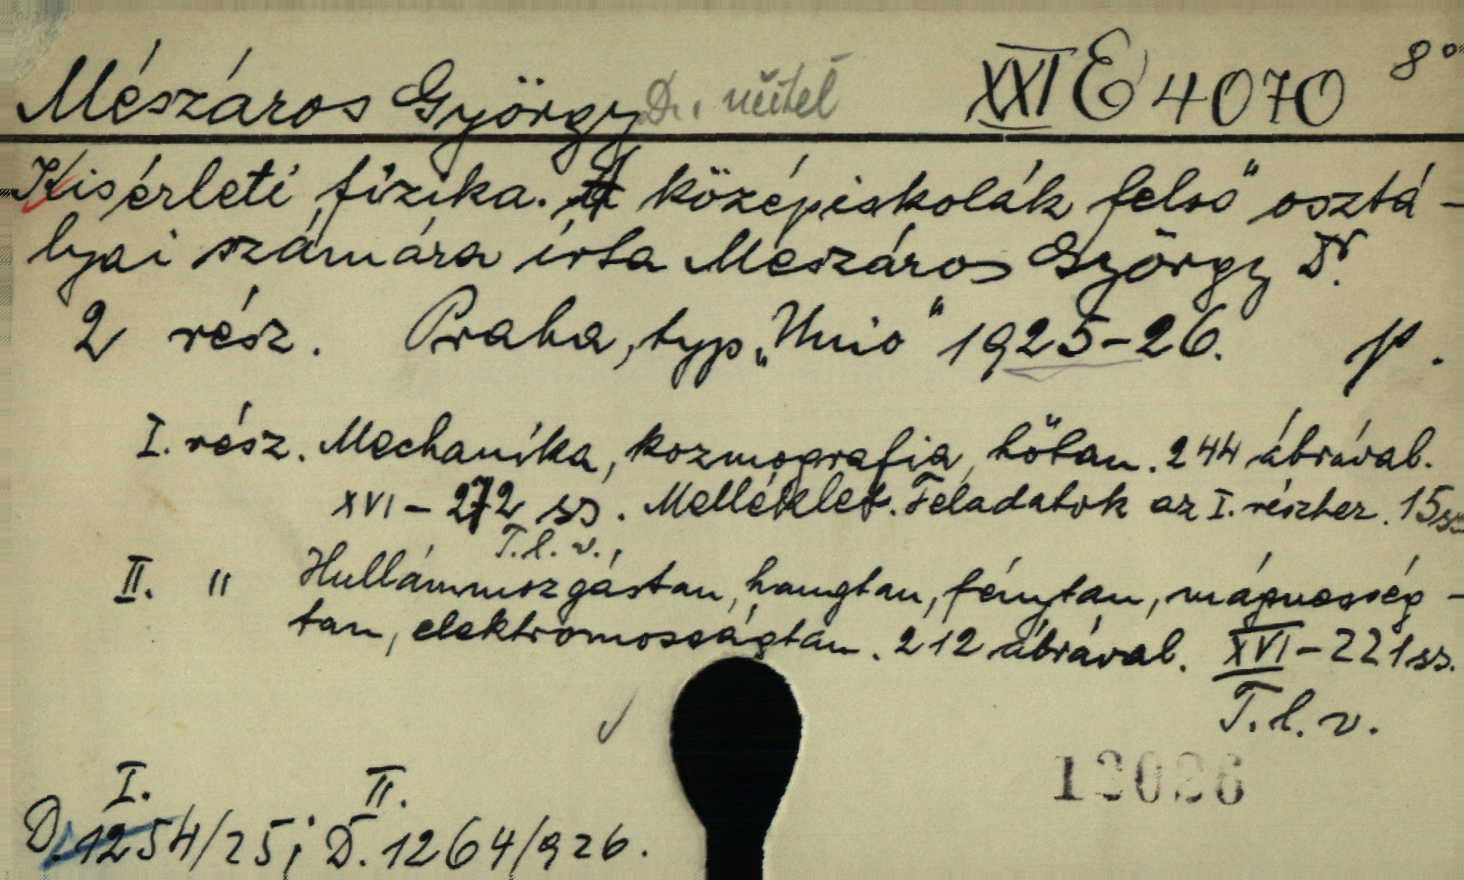 Mészáros György Dr. učitel XXI E 4070 8°
Kisérleti fizika. A középiskolák felső osztá-
lyai számára írta Mészáros György Dr.
2 rész. Praha, typ „Unio" 1925-26. p.
I. rész. Mechanika, kozmografia, hőtan. 244 ábrával.
XVI - 272 ss. Melléklet. Feladatok az I. részhez. 15 ss
T. l. v.,
II. " Hullámmozgástan, hangtan, fénytan, mágnesség-
tan, elektromosságtan. 212 ábrával. XVI - 221 ss.
T. l. v.
12026
I. II.
D. 1254/25; D. 1264/926.